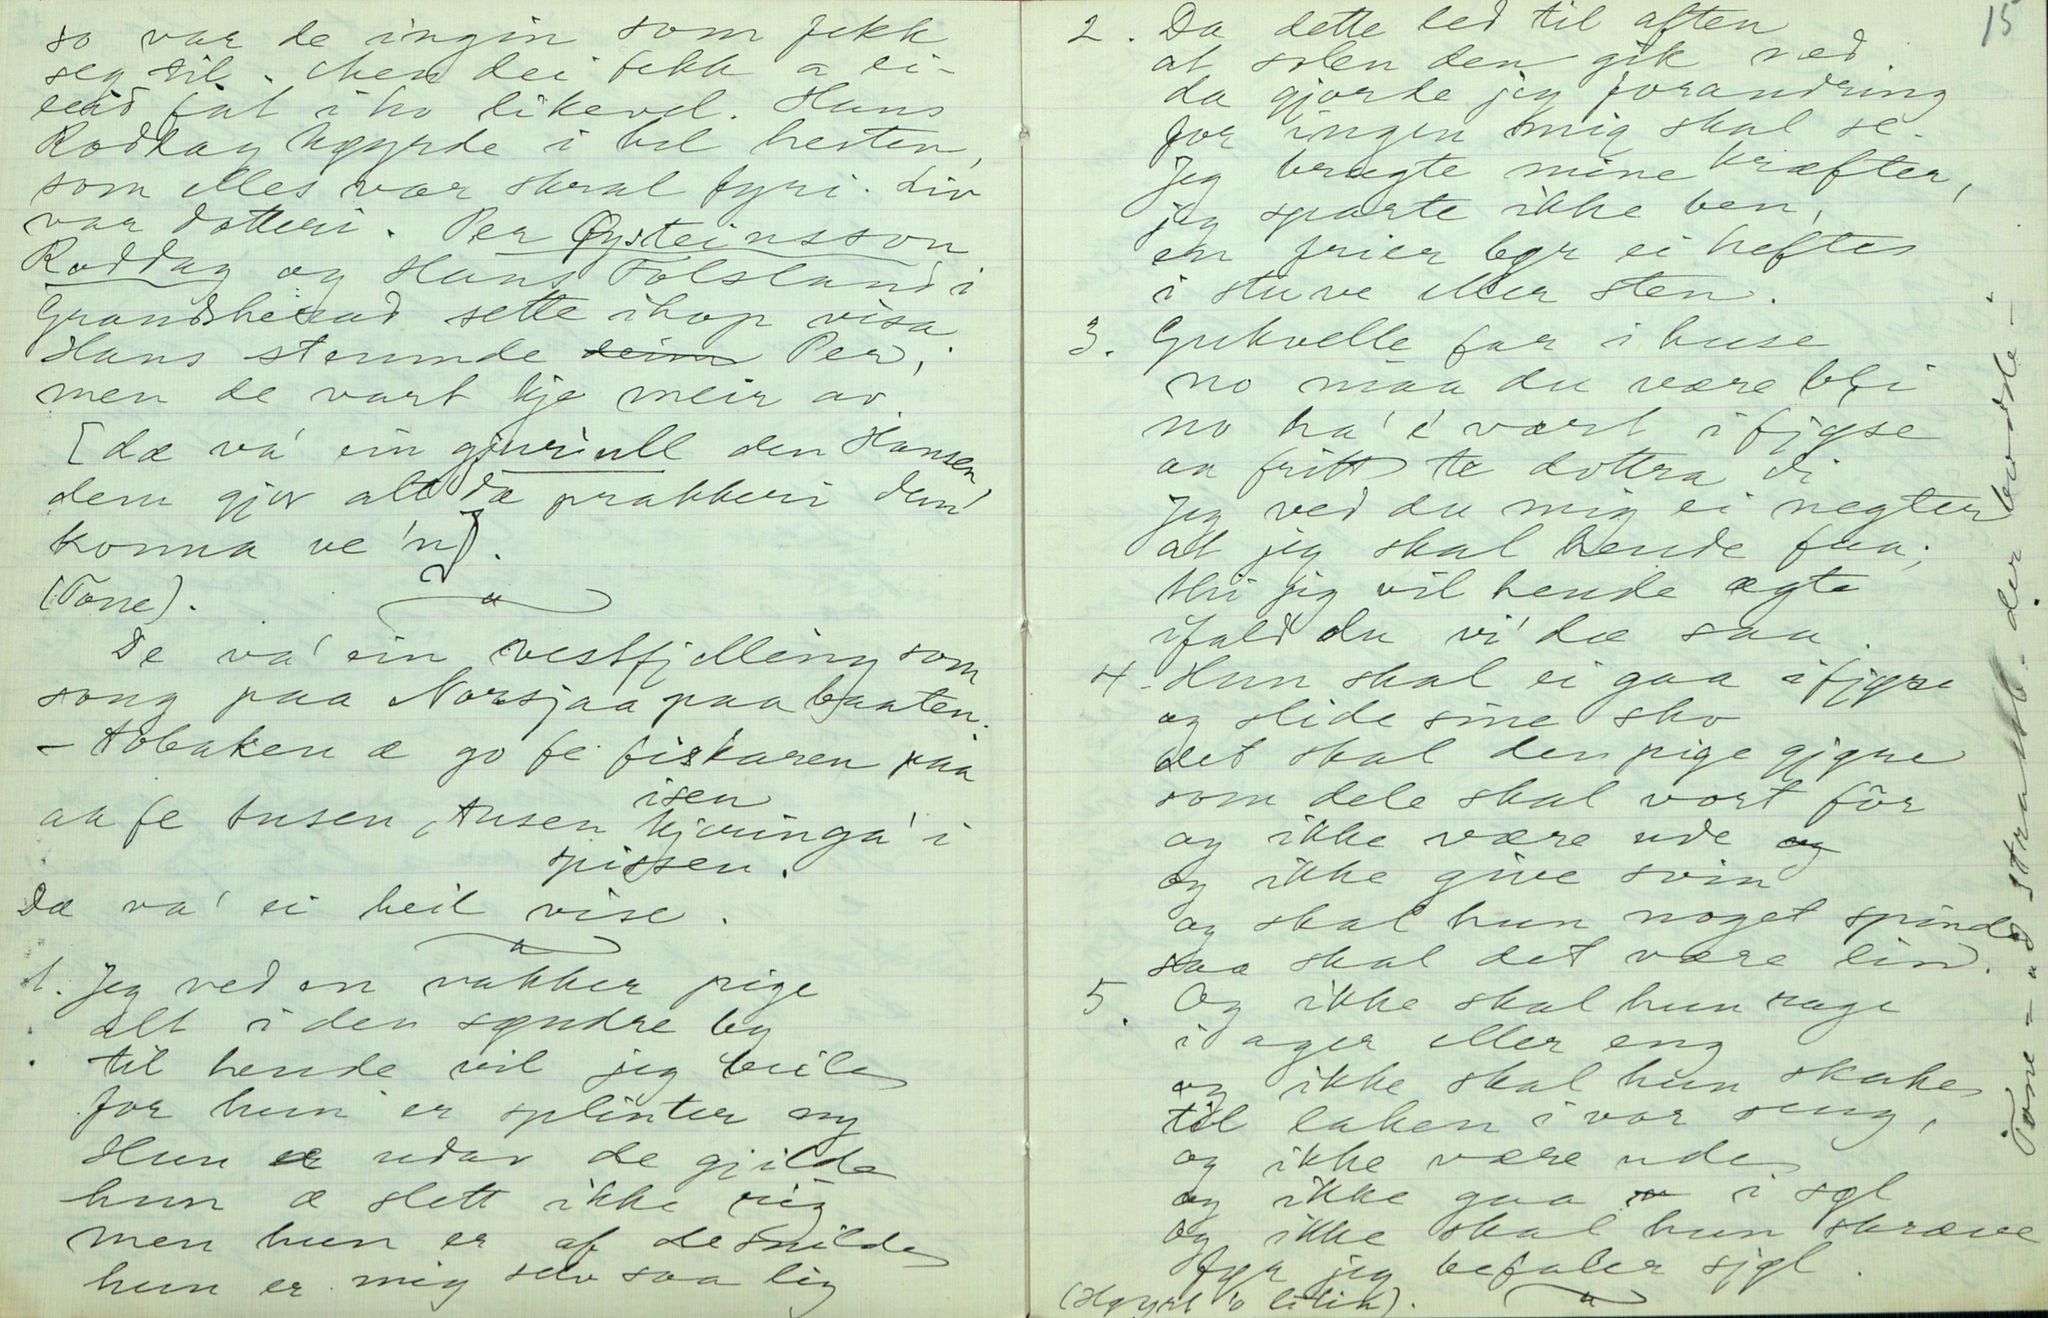 so var de ingin som fekk
seg til. Men dei fekk a ei-
eid fat i ho likevel. Hans
Roddag høyrde i bel hesten,
som elles var skral fyri. Liv
var dotteri. Per Øysteinsson
Roddag og Hans Folsland i
Gransherad sette ihop visa
Hans stemnde deim Per,
men de vart kje meir av.
[dæ va' ein giurivll den Hansen,
dem gjor alt dæ prakkeri dem
konna ve'n].
(Tone).
De va' ein vestfjelling som
song paa Norsjaa paa baaten.
- Tobaken æ go fe fiskaren paa
isen
aa fe tusen, tusen kjæringa' i
spissen.
Dæ va' ei heil vise.
1. Jeg ved en vakker pige
alt i den søndre by
til hende vil jeg beile
for hun er splinter ny
Hun er udav de gjilde
hun æ slett ikke rig
men hun er af de snilde
hun er mig selv saa lig
15
2. Da dette led til aften
at solen den gik ned
da gjorde jeg forandring
for ingen mig skal se.
Jeg brugte mine kræfter,
jeg sparte ikke ben,
en frier bør ei heftes
i stuve eller sten.
3. Gukvelle far i huse
no maa du være bli
no ha' e' vært i fjøse
aa fritt te dottra di
Jeg ved du mig ei negter
at jeg skal hende faa,
thi jeg vil hende ægte
ifald du vi' dæ saa.
4. Hun skal ei gaa i fjøse
og slide sine sko
det skal den pige gjøre
som dele skal vort fôr
og ikke være ude og
og ikke give svin
og skal hun noget spinde
saa skal det være lin.
5. Og ikke skal hun rage
i ager eller eng
og ikke skal hun skake
til laken i vor seng,
og ikke være ude
og ikke gaa i søl
og ikke skal hun skræve
før jeg befaler sjøl.
(Høyrt 'o litik).
Tone - ad Strandt - der budde -